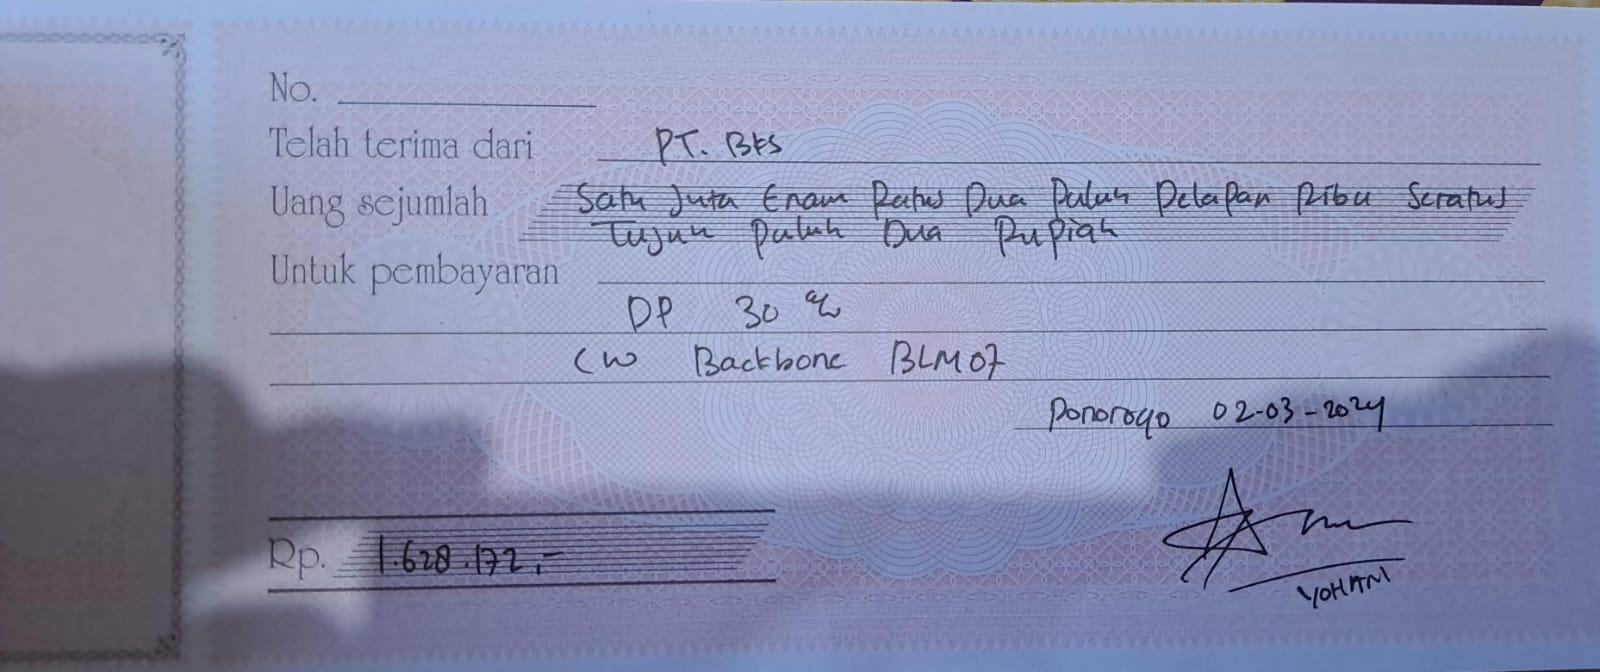 No.
Telah terima dari PT. BKS
Uang sejumlah Satu Juta Enam Ratus Dua Puluh Delapan Ribu Seratus
Tujuh Puluh Dua Rupiah
Untuk pembayaran
DP 30 %
CW Backbone BLM07
Ponorogo 02-03-2024
Rp. 1.628.172,-
YOHAN